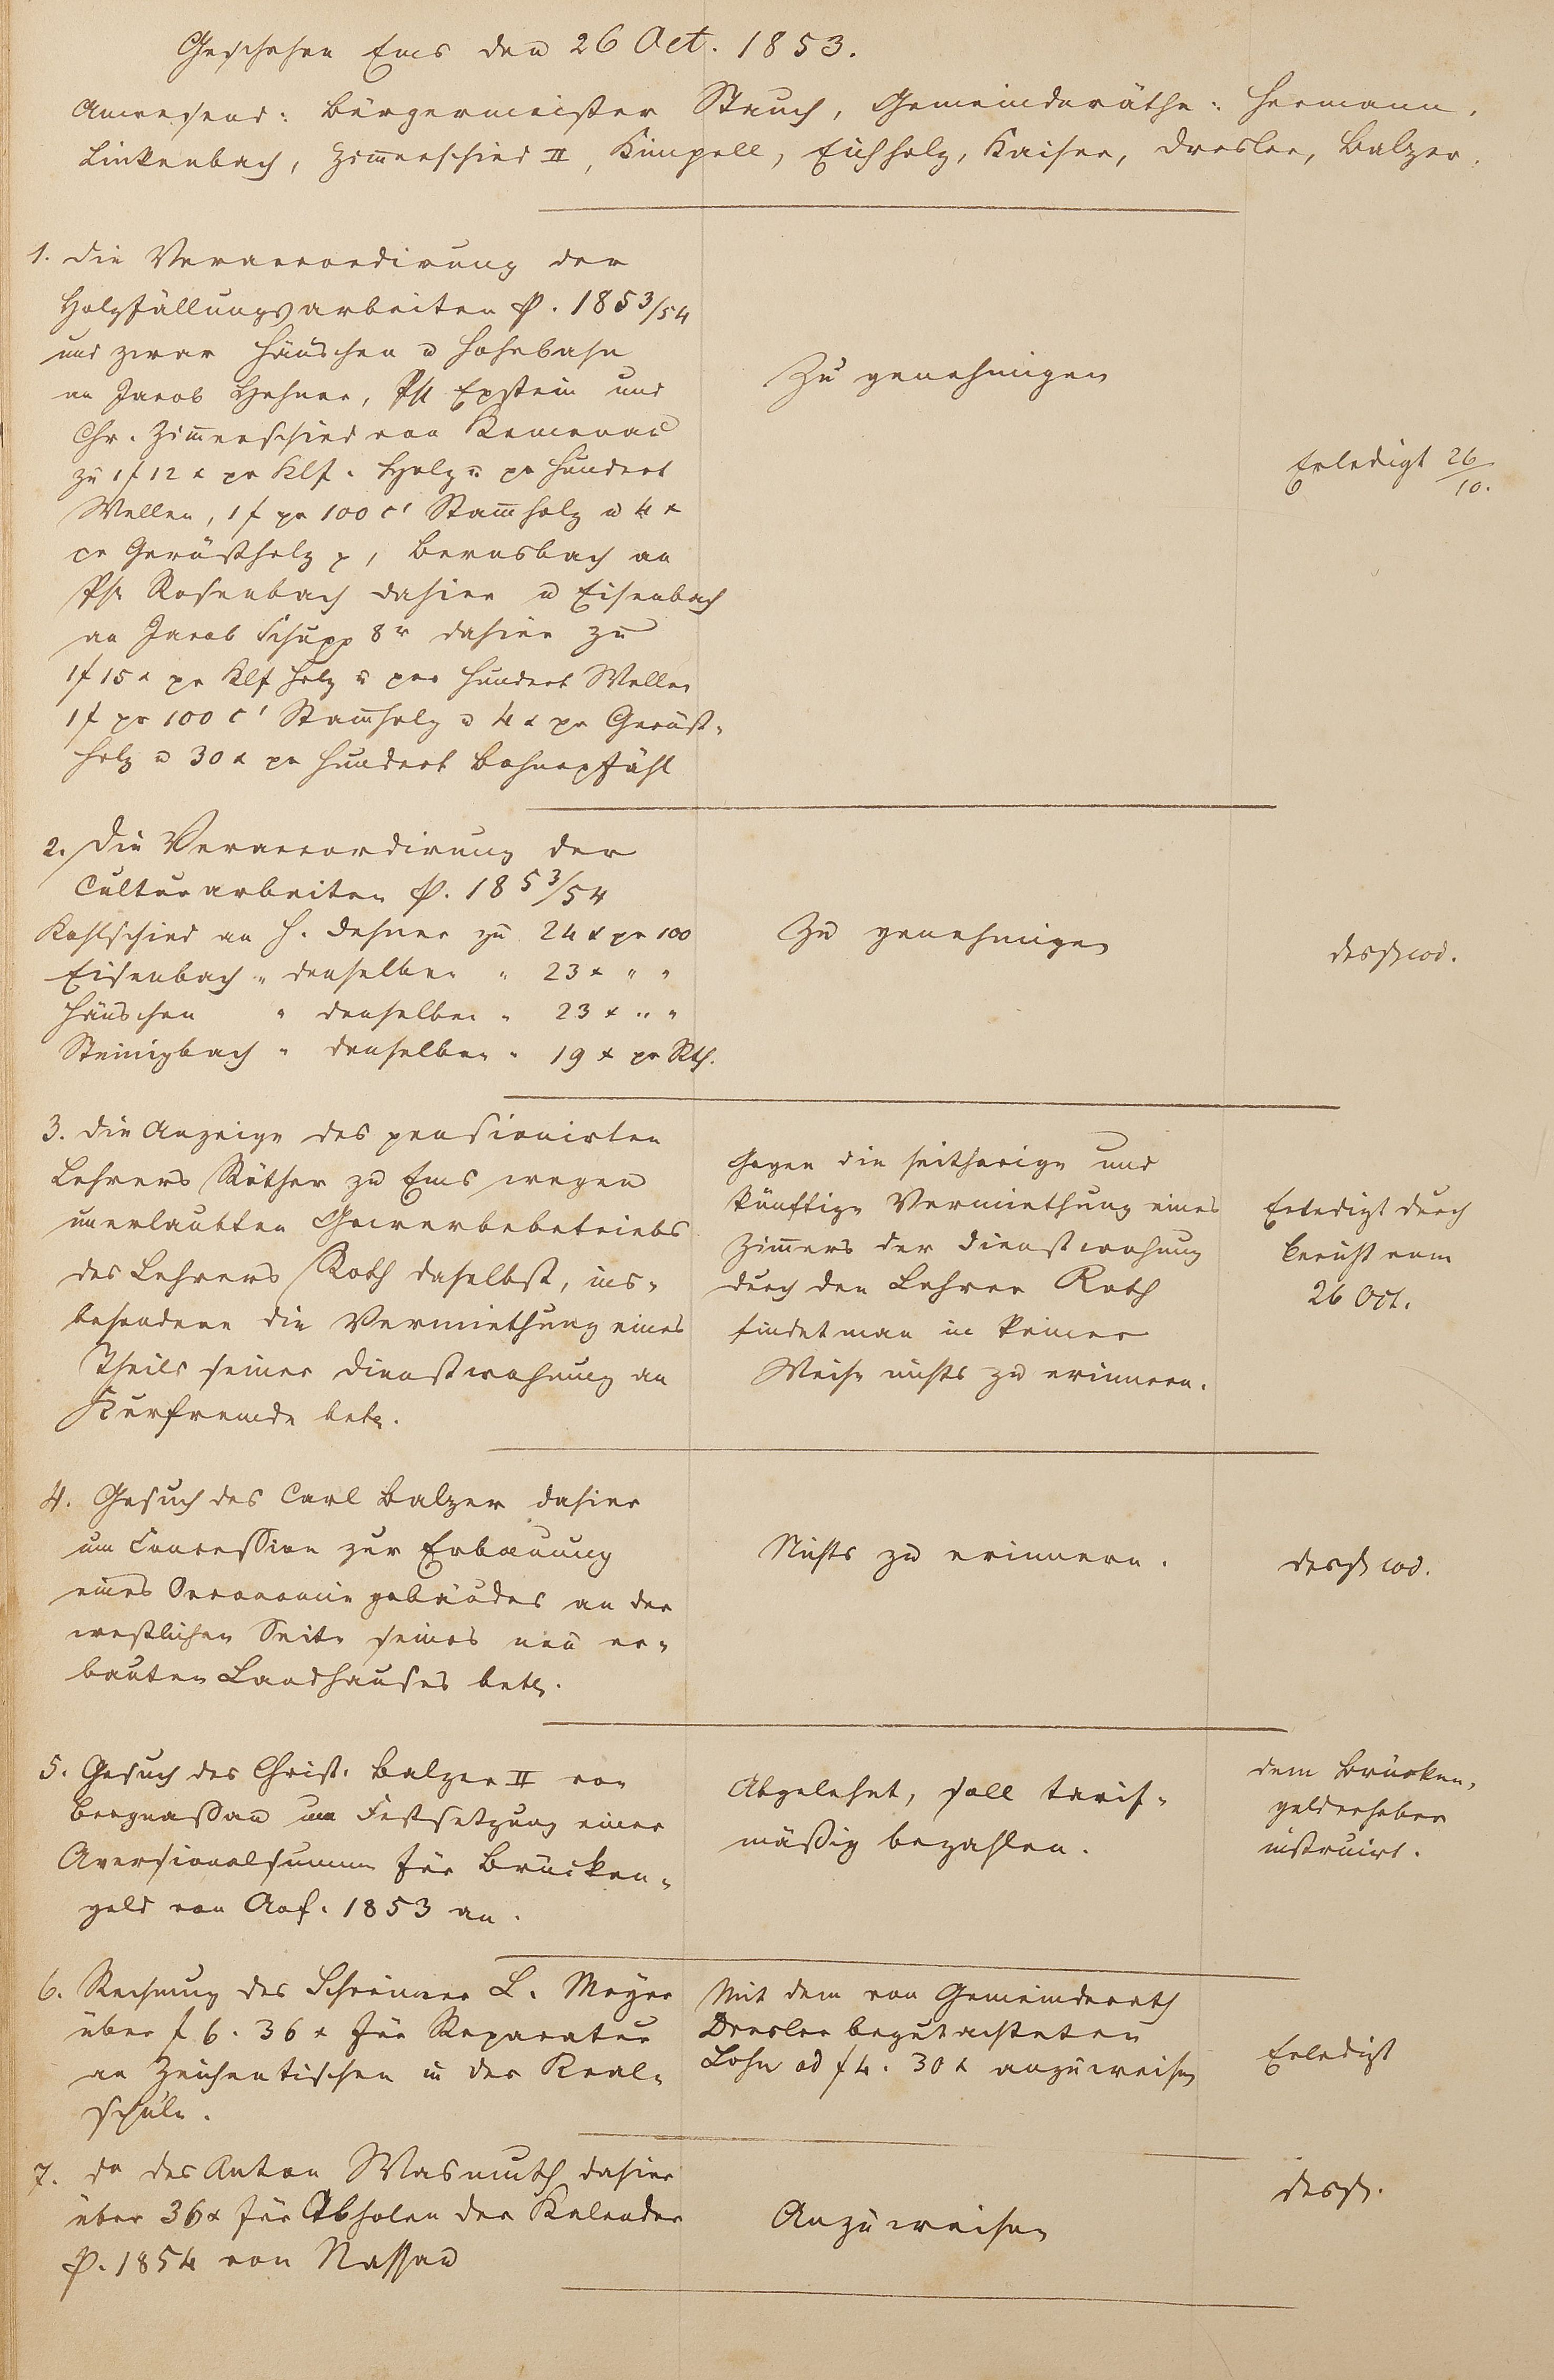 Geschehen Ems den 26 Oct. 1853.
Anwesend: Bürgermeister Stauch, Gemeinderäthe: Hermann,
Linkenbach, Zim̅erschied II, Kimpell, Eichholz, Kaiser, Dresler, Balzer.
1. Die Veraccordirung der
Holzfällungsarbeiten p. 1853/54
und zwar Häuschen u Hohebahn
an Jacob Hehner, Ph Epstein und
Chr. Zim̅erschied von Kemenau
zu 1 f 12 x pr Klf. Holz u pr Hundert
Wellen, 1 f pr 100 c' Stam̅holz u 4 x
pr Gerüstholz p, Bernsbach an
Ph Rosenbach dahier u Eisenbach
an Jacob Schupp 8r dahier zu
1 f 15 x pr Klf Holz u pro Hundert Wellen
1 f pr 100 c' Stam̅holz u 4 x pr Gerüst-
holz u 30 x pr Hundert Bohnepfähl
Zu genehmigen
Erledigt 26/10.
2. Die Veraccordirung der
Culturarbeiten p. 1853/54
Kohlschied an H. Dehner zu 24 x pr 100
Eisenbach " denselben " 23 x " "
Häuschen " denselben " 23 x " "
Steinigbach " denselben " 19 x pr Rth.
Zu genehmigen
desgl. eod.
3. Die Anzeige des pensionirten
Lehrers Röther zu Ems wegen
unerlaubten Gewerbebetriebs
des Lehrers Roth daselbst, ins-
besondere die Vermiethung eines
Theils seiner Dienstwohnung an
Kurfremde betr.
Gegen die seitherige und
künftige Vermiethung eines
Zim̅ers der Dienstwohnung
durch den Lehrer Roth
findet man in keiner
Weise nichts zu erinnern.
Erledigt durch
Bericht vom
26 Oct.
4. Gesuch des Carl Balzer dahier
um Concession zur Erbauung
eines Oeconomiegebäudes an der
westlichen Seite seines neu er-
bauten Landhauses betr.
Nichts zu erinnern.
desgl. eod.
5. Gesuch des Christ. Balzer II von
Bergnassau um Festsetzung einer
Aversionalsumme für Brücken-
geld von Anf. 1853 an.
Abgelehnt, soll tarif-
mäßig bezahlen.
dem Brücken-
gelderheber
instruirt.
6. Rechnung des Schreiner L. Meyer
über f 6. 36 x für Reparatur
an Zeichentischen in der Real-
schule.
Mit dem von Gemeinderath
Dresler begutachteten
Lohn ad f 4. 30 x anzuweisen
Erledigt
7. do des Anton Wasmuth dahier
über 36 x für Abholen der Kalender
p. 1854 von Nassau
Anzuweisen
desgl.